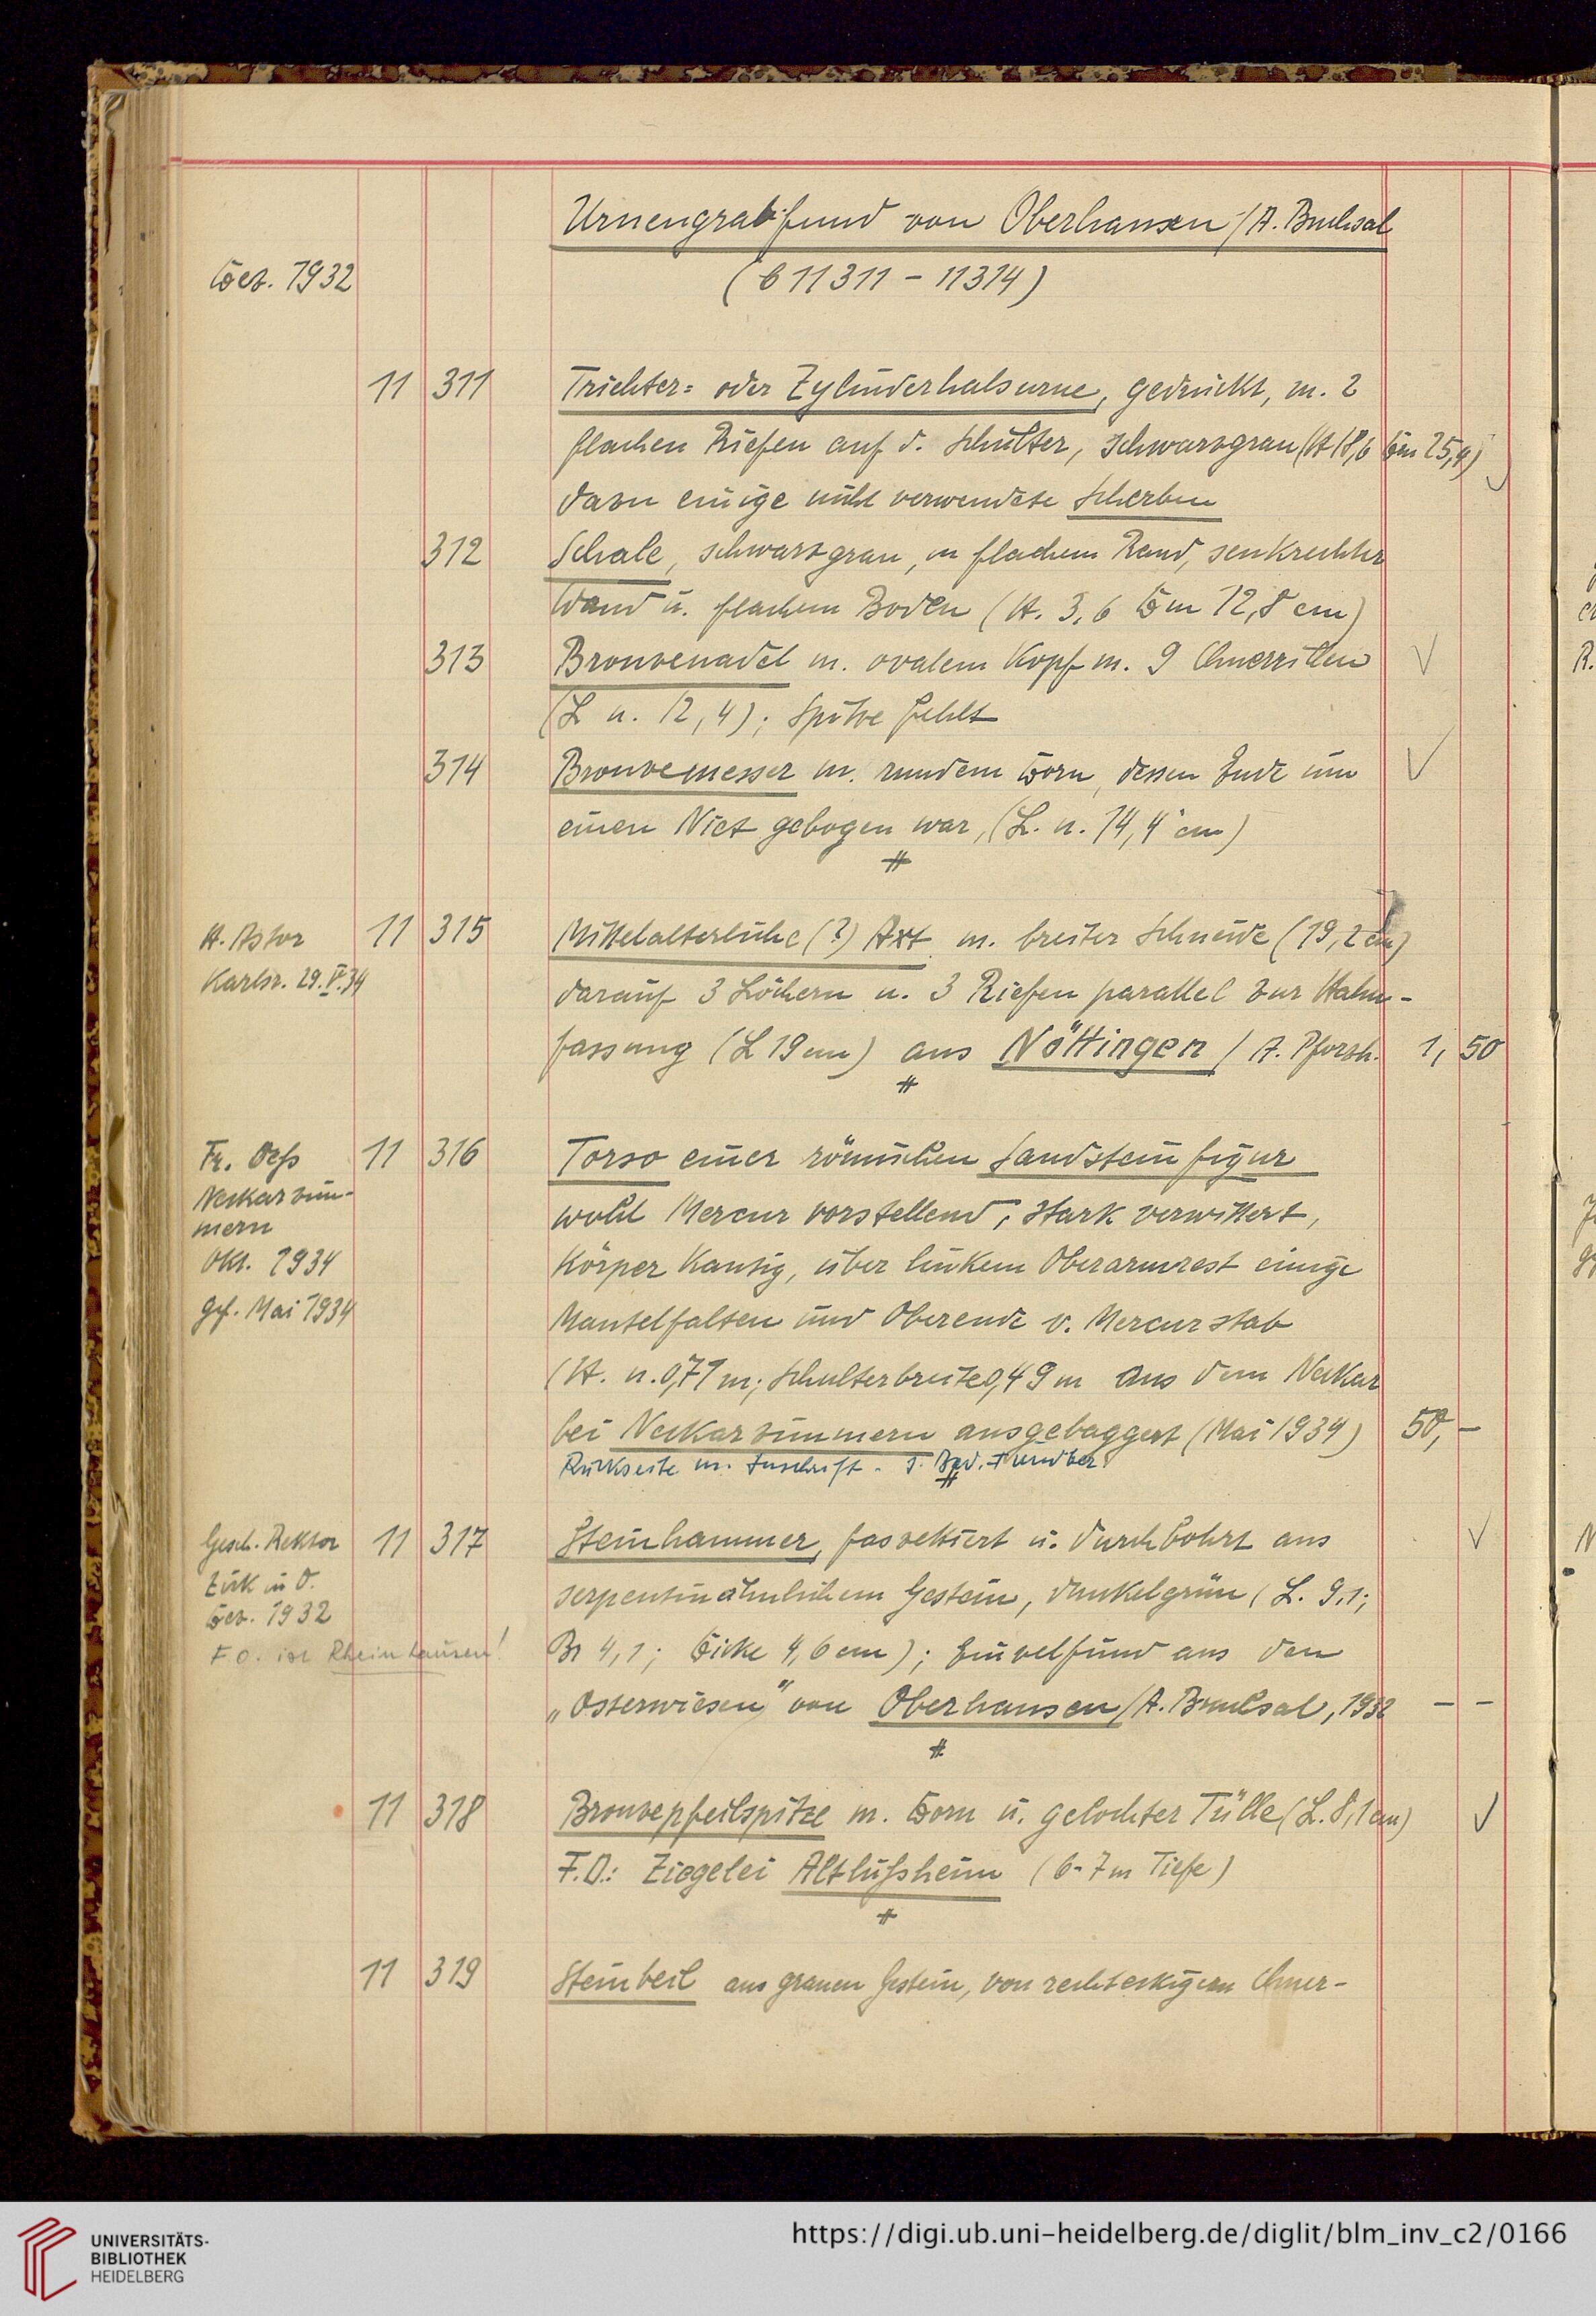 Urnengrabfund von Oberhausen / A. Bruchsal
Dez. 1932
(C 11311 - 11314)
11 311 Trichter= oder Zylinderhalsurne, gedrückt, m. 2
flachen Riefen auf d. Schulter, schwarzgrau (H 18,6 Dm 25,4)
dazu einige nicht verwendete Scherben
312 Schale, schwarzgrau, m flachem Rand, senkrechter
Wand u. flachem Boden (H. 3,6 Dm 12,8 cm)
313 Bronzenadel m. ovalem Kopf m. 9 Querrillen
(L n. 12,4); Spitze fehlt
314 Bronzemesser m. rundem Dorn, dessen Ende um
einen Niet gebogen war, (L. n. 14,4 cm)
H. Astor 11 315 Mittelalterliche (?) Axt m. breiter Schneide (19,2 cm)
Karlsr. 29.V.34
darauf 3 Löchern u. 3 Riefen parallel zur Halm-
fassung (L 19 cm) aus Nöttingen / A. Pforzh. 1, 50
Fr. Oess 11 316 Torso einer römischen Sandsteinfigur
Neckarzim-
mern
wohl Mercur vorstellend, stark verwittert,
Okt. 1934
Körper kantig, über linkem Oberarmrest einige
gef. Mai 1934
Mantelfalten und Oberende v. Mercurstab
(H. n. 0,71 m; Schulterbreite 0,49 m aus dem Neckar
bei Neckarzimmern ausgebaggert (Mai 1934) 50, -
Rückseite m. Inschrift.
Gesch. Rektor 11 317 Steinhammer, fassettiert u. durchbohrt aus
Zirk in O.
serpentinähnlichem Gestein, dunkelgrün (L. 9,1;
Dez. 1932
F O. ist Rheinhausen!
Br 4,1; Dicke 4,6 cm); Einzelfund aus den
„Osterwiesen" von Oberhausen / A. Bruchsal, 1932 - -
11 318 Bronzepfeilspitze m. Dorn u. gelochter Tülle (L. 8,1 cm)
F.O.: Ziegelei Altlußheim (6-7 m Tiefe)
11 319 Steinbeil aus grauem Gestein, von rechteckigem Quer-
UNIVERSITÄTS-
BIBLIOTHEK
HEIDELBERG
https://digi.ub.uni-heidelberg.de/diglit/blm_inv_c2/0166